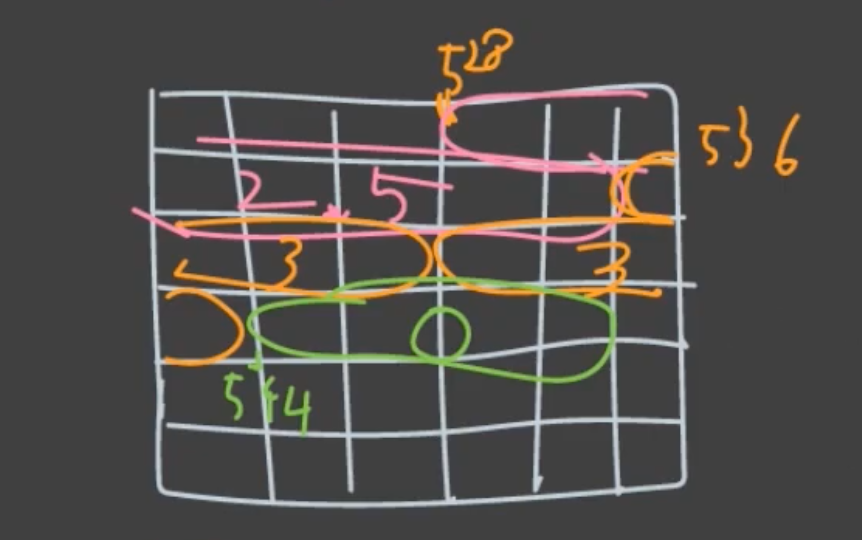 528
536
2.5
3 3
544